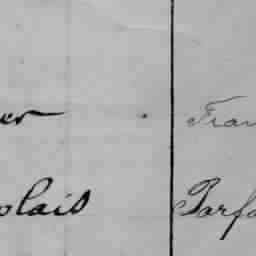 er Fran
olais Parfa